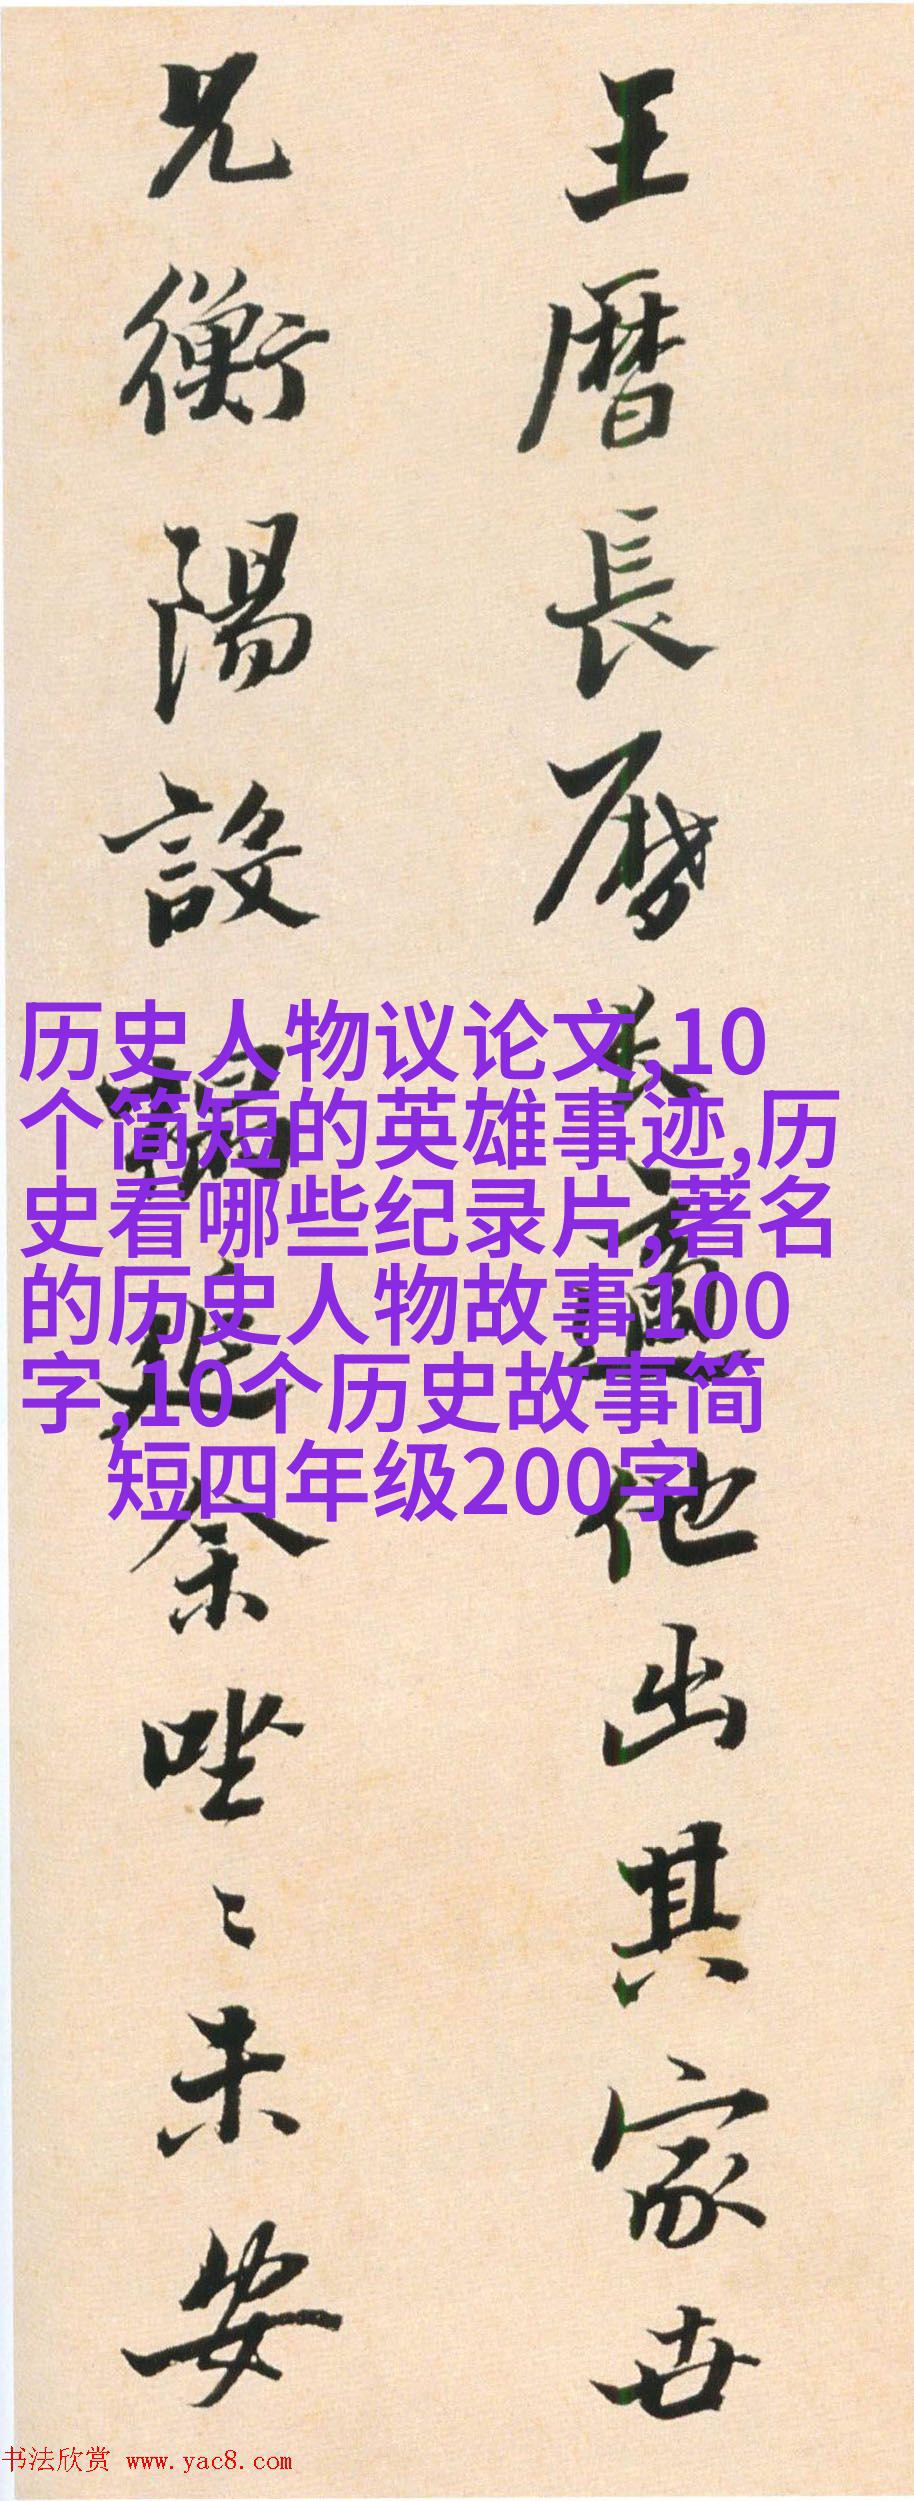 王曆長曆
他出其家世
兄衡陽設
坐〻未安
历史人物议论文,10
个简短的英雄事迹,历
史看哪些纪录片,著名
的历史人物故事100
字,10个历史故事简
短四年级200字
书法欣赏 www.yac8.com